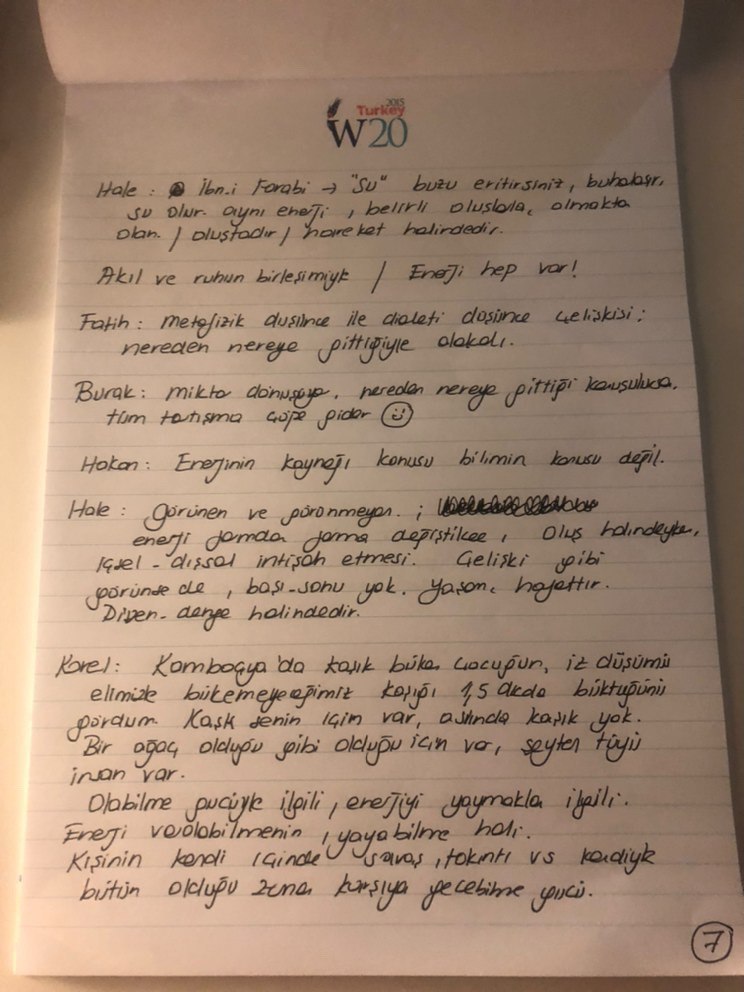 2015
Turkey
W20
Hale : İbn.i Farabi → "Su" buzu eritirsiniz, buharlaşır,
su olur. aynı enerji, belirli oluşlarla, olmakta
olan / oluştadır / hareket halindedir.
Akıl ve ruhun birleşimiyle / Enerji hep var!
Fatih : Metafizik düşünce ile dialeti düşünce çelişkisi;
nereden nereye gittiğiyle alakalı.
Burak : mikta dönüşüyo, nereden nereye gittiği konuşulursa,
tüm tartışma çöpe gider
Hakan : Enerjinin kaynağı konusu bilimin konusu değil.
Hale : Görünen ve görünmeyen ;
enerji formdan forma değiştikçe, oluş halindeyken,
içsel - dışsal intişah etmesi. Çelişki gibi
görünse de, başı-sonu yok. Yaşam, hayattır.
Düzen - denge halindedir.
Korel : Kamboçya'da kaşık büken çocuğun, iz düşümü
elimizle bükemeyeceğimiz kaşığı 1,5 dkda büktüğünü
gördüm. Kaşık senin için var, aslında kaşık yok.
Bir ağaç olduğu gibi olduğu için var, şeyten tüyü
insan var.
Olabilme gücüyle ilgili, enerjiyi yaymakla ilgili.
Enerji varolabilmenin, yayabilme hali.
Kişinin kendi içinde savaş, takıntı vs kendiyle
bütün olduğu zaman karşıya geçebilme gücü.
7